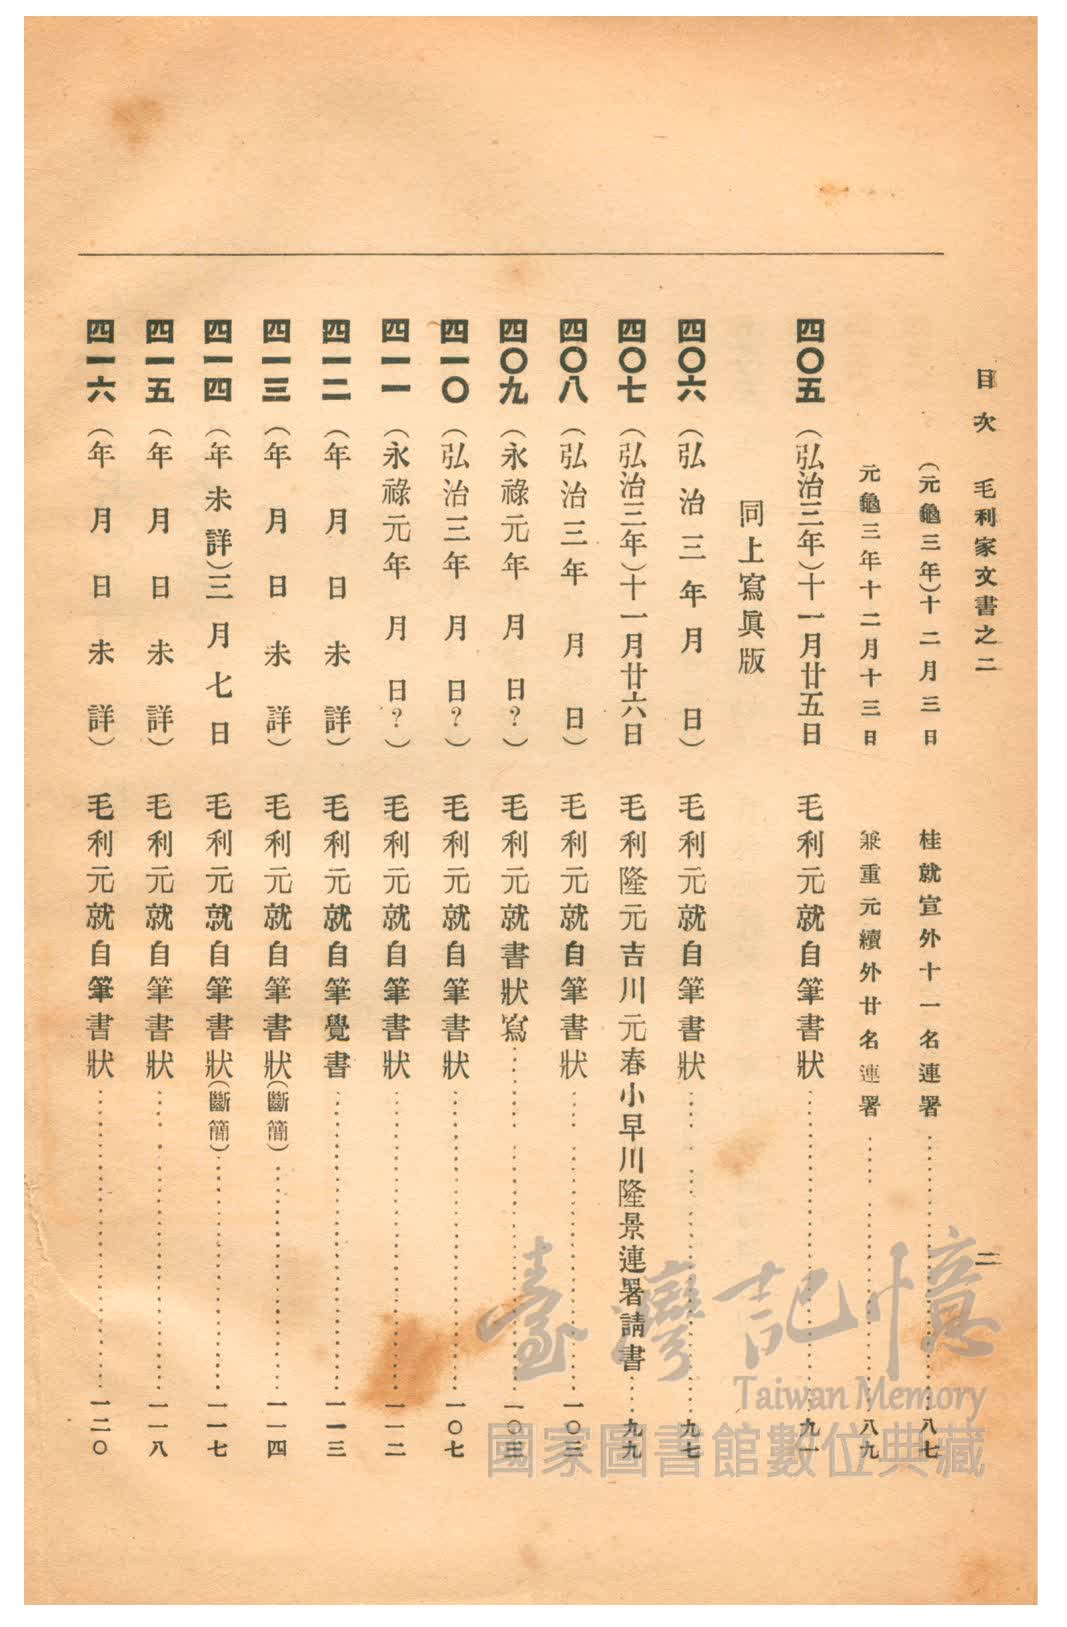 目次 毛利家文書之二 二
（元龜三年）十二月三日 桂就宣外十一名連署 八七
元龜三年十二月十三日 兼重元續外廿名連署 八九
四〇五 （弘治三年）十一月廿五日 毛利元就自筆書狀 九一
同上寫眞版
四〇六 （弘治三年月 日） 毛利元就自筆書狀 九七
四〇七 （弘治三年）十一月廿六日 毛利隆元吉川元春小早川隆景連署請書 九九
四〇八 （弘治三年 月 日） 毛利元就自筆書狀 一〇三
四〇九 （永祿元年 月 日？） 毛利元就書狀寫
四一〇 （弘治三年 月 日？） 毛利元就自筆書狀 一〇七
四一一 （永祿元年 月 日？） 毛利元就自筆書狀 一一二
四一二 （年月日未詳） 毛利元就自筆覺書 一一三
四一三 （年月日未詳） 毛利元就自筆書狀（斷簡） 一一四
四一四 （年未詳）三月七日 毛利元就自筆書狀（斷簡） 一一七
四一五 （年月日未詳） 毛利元就自筆書狀 一一八
四一六 （年月日未詳） 毛利元就自筆書狀 一二〇
臺灣記憶
Taiwan Memory
國家圖書館數位典藏